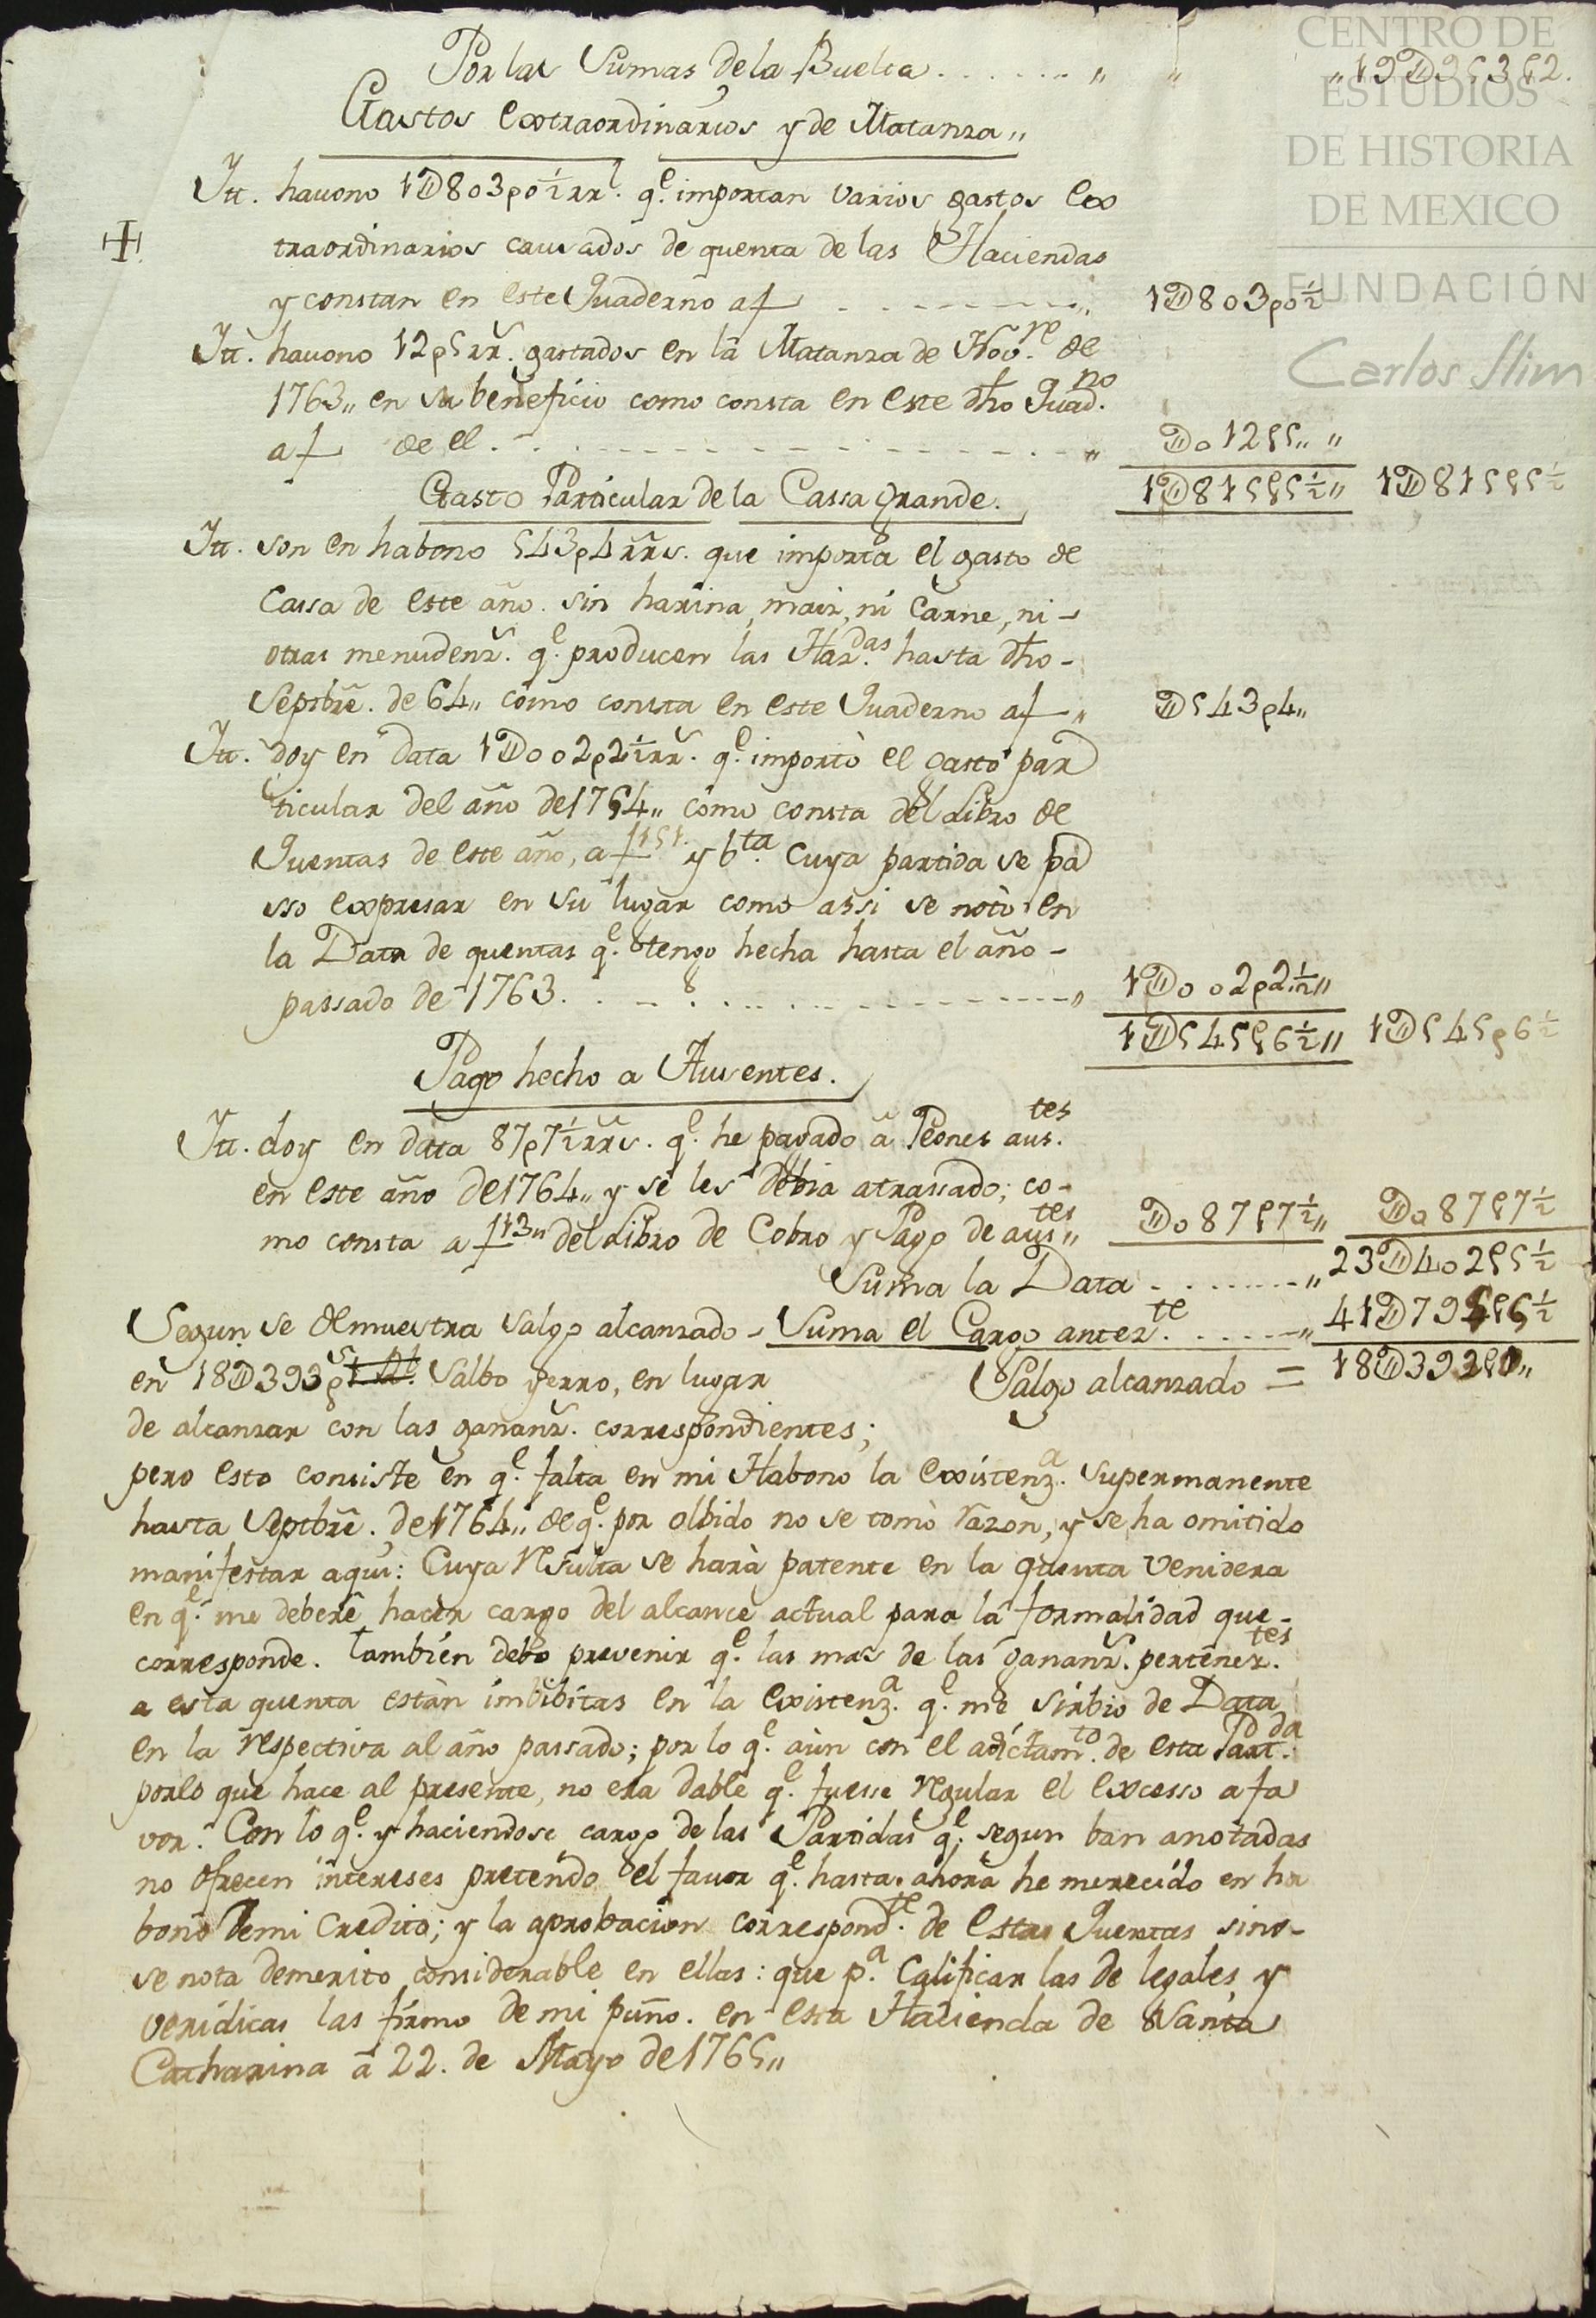 Por las Sumas de la Buelta . . . . . . „ „ „19D953p2.
Gastos Extraordinarios y de Matanza„
Itt. havono 1D803p0½ rr.ˢ q.ᵉ importan varios gastos Ex
traordinarios causados de quenta de las Haciendas
y constan en este Quaderno a f „ 1D803p0½
Itt. havono 12p5 rr.ˢ gastados en la Matanza de Nov.ʳᵉ de
1763„ en su beneficio como consta en este dho Quad.ⁿᵒ
a f de el . „ D012p5„ „
1D815p5½„ 1D815p5½
Gasto Particular de la Cassa grande.
Itt. son en habono 543p4 rrˢ. que importa el gasto de
Cassa de este año. sin harina, maiz, ni Carne, ni -
otras menudenz.ˢ q.ᵉ producen las Haz.ᵈᵃˢ hasta dho -
Septbrē. de 64„ como consta en este Quaderno a f „ D543p4„
Itt. doy en data 1D002p2½ rr.ˢ q.ᵉ importò el gasto par
ticular del año de 1754„ como consta del Libro de
Quentas de este año, a f 151. y b.ᵗᵃ Cuya partida se pa
sso expresar en su lugar como assi se notò en
la Data de quentas q.ᵉ tengo hecha hasta el año -
passado de 1763. „ 1D002p2½„
1D545p6½„ 1D545p6½
Pago hecho a Ausentes.
Itt. doy en data 87p7½ rrˢ. q.ᵉ he pagado â Peones aus.ᵗᵉˢ
en este año de 1764„ y se les debia atrassado; co-
mo consta a f 113„ del Libro de Cobro y Pago de aus.ᵗᵉˢ„ D087p7½„ D087p7½
Suma la Data . . . . . . . „ 23D402p5½
Segun se demuestra Salgo alcanzado - Suma el Cargo antez.ᵗᵉ . . . . . „ 41D79
en 18D393p Salbo yerro, en lugar Salgo alcanzado = 18D39
de alcanzar con las gananz.ˢ correspondientes;
pero esto consiste en q.ᵉ falta en mi Habono la existenz.ᵃ Supermanente
hasta Septbrē. de 1764„ de q.ᵉ por olbido no se tomò razon, y se ha omitido
manifestar aqui: Cuya resulta se harà patente en la quenta venidera
en q.ᵉ me deberê hacer cargo del alcance actual para la formalidad que -
corresponde. tambien debo prevenir q.ᵉ las mas de las gananz.ˢ pertenez.ᵗᵉˢ
a esta quenta estàn imbibitas en la existenz.ᵃ q.ᵉ me sirbio de Data
en la respectiva al año passado; por lo q.ᵉ aùn con el adictam.ᵗᵒ de esta Part.ᵈᵃ
porlo que hace al presente, no era dable q.ᵉ fuesse regular el excesso a fa
vor. Con lo q.ᵉ y haciendose cargo de las Partidas q.ᵉ segun ban anotadas
no ofrecen intereses pretendo el favor q.ᵉ hasta ahora he merecido en ha
bono demi credito; y la aprobacion correspond.ᵗᵉ de estas Quentas sino-
se nota demerito considerable en ellas: que p.ᵃ Calificar las de legales y
veridicas las firmo de mi puño. en esta Hacienda de Santa
Catharina â 22. de Mayo de 1765„
CENTRO DE
ESTUDIOS
DE HISTORIA
DE MEXICO
FUNDACIÓN
Carlos Slim